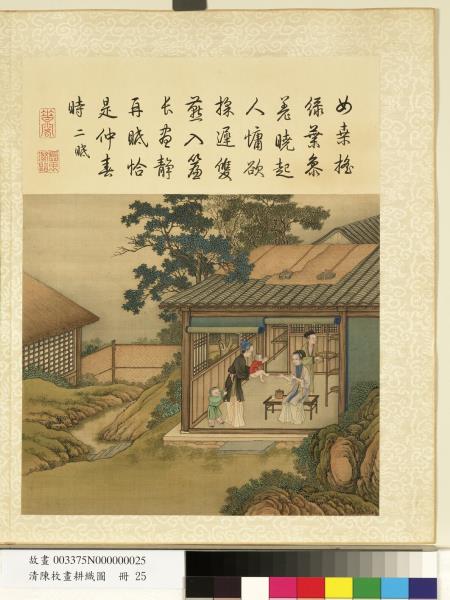 女桑搖
綠葉參
差曉起
人慵欲
採遲雙
燕入簾
長晝靜
再眠恰
是仲春
時 二眠
故畫 003375N000000025
清陳枚畫耕織圖 冊 25